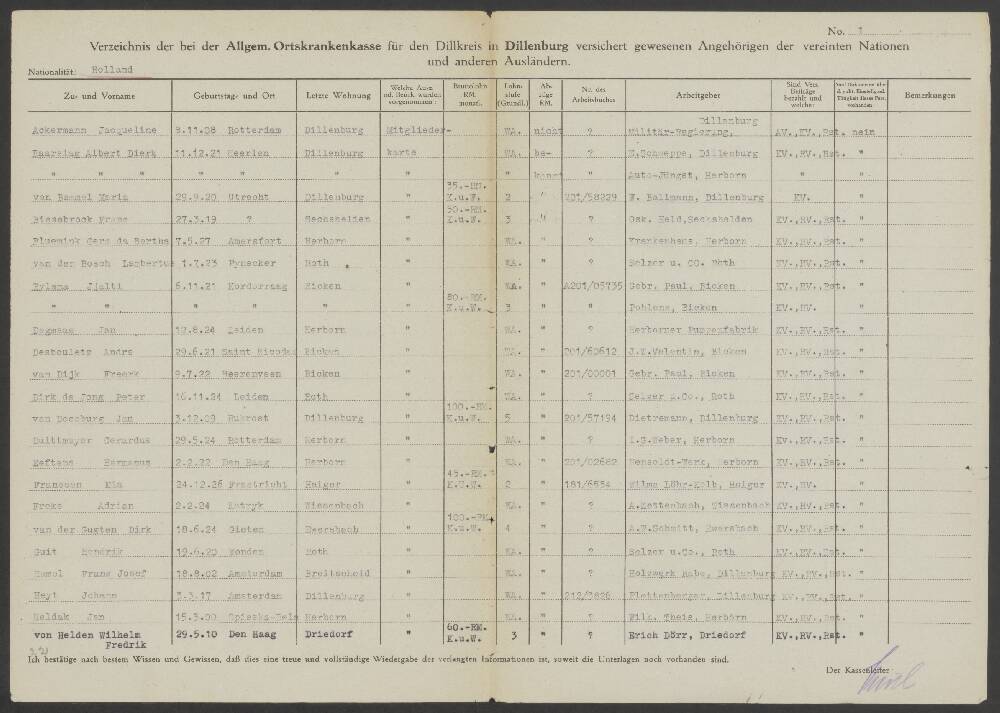 No. 1
Verzeichnis der bei der Allgem. Ortskrankenkasse für den Dillkreis in Dillenburg versichert gewesenen Angehörigen der vereinten Nationen
und anderen Ausländern.
Nationalität: Holland
Zu- und Vorname Geburtstag- und Ort Letzte Wohnung Barlohn RM. monatl. Lohn-stufe (Grundl.) Nr. des Arbeitsbuches Arbeitgeber Sind Vers. Beiträge bezahlt und welche Bemerkungen
Dillenburg
Ackermann Jacqueline 8.11.08 Rotterdam Dillenburg Mitglieder- WA. nicht ? Militär-Regierung, AV.,KV.,Rst. nein
Albert Dierk 11.12.21 Heerlen Dillenburg karte WA. be- ? Schweppe, Dillenburg KV.,RV.,Rst. "
" " " " " " " kannt " Auto-Jüngst, Herborn " "
35.-RM.
van Bammel Maria 29.9.20 Utrecht Dillenburg " K.u.W. 2 " 201/58229 Ballmann, Dillenburg KV. "
50.-RM.
Biesebrock Frans 27.3.19 ? Sechshelden " K.u.W. 3 " ? Osk. Held, Sechshelden KV.,RV.,Rst. "
7.5.27 Amersfort Herborn " WA. " ? Krankenhaus, Herborn KV.,RV.,Rst. "
van der Bosch Lambertus 1.7.23 Roth " WA. " ? Selzer u. CO. Roth KV.,RV.,Rst. "
6.11.21 Bicken " WA. " A201/05735 Gebr. Paul, Bicken KV.,RV.,Rst. "
80.-RM.
" " " " " " K.u.W. 3 " " Pohlens, Bicken KV.,RV. "
Jan 12.8.24 Leiden Herborn " WA. " ? Herborner Puppenfabrik KV.,RV.,Rst. "
Andre 29.6.21 Saint Bicken " WA. " 201/60612 J.W.Valentin, Bicken KV.,RV.,Rst. "
van Dijk Freerk 9.7.22 Heerenveen Bicken " WA. " 201/00001 Gebr. Paul, Bicken KV.,RV.,Rst. "
Dirk de Jong Peter 16.11.24 Leiden Roth " WA. " ? Selzer u.Co., Roth KV.,RV.,Rst. "
100.-RM.
van Doesburg Jan 3.12.09 Dillenburg " K.u.W. 5 " 201/57194 Dietermann, Dillenburg KV.,RV.,Rst. "
Gerardus 29.5.24 Rotterdam Herborn " WA. " ? Weber, Herborn KV.,RV.,Rst. "
Hermanus 2.2.22 Den Haag Herborn " WA. " 201/02682 Hensoldt-Werk, Herborn KV.,RV.,Rst. "
45.-RM.
Franssen Mia 24.12.26 Haiger " K.u.W. 2 " 181/6554 Wilma Löhr-Kolb, Haiger KV.,RV. "
Freke Adrian 2.2.24 Wissenbach " WA. " ? A.Kettenbach, Wissenbach KV.,RV.,Rst. "
100.-RM.
van der Gugten Dirk 18.6.24 Ewersbach " K.u.W. 4 " ? Schmitt, Ewersbach KV.,RV.,Rst. "
Guit Hendrik 19.6.20 Roth " WA. " ? Selzer u.Co., Roth KV.,RV.,Rst. "
Hamel Franz Josef 18.8.02 Amsterdam Breitscheid " WA. " ? Holzwerk Rabe, Dillenburg KV.,RV.,Rst. "
Heyt Johann 3.3.17 Amsterdam Dillenburg " WA. " 212/3826 Plettenberger, Dillenburg KV.,RV.,Rst. "
Heldak Jan 15.3.00 Herborn " WA. " ? Wilh. Theis, Herborn KV.,RV.,Rst. "
60.-RM.
von Helden Wilhelm 29.5.10 Den Haag Driedorf " K.u.W. 3 " ? Erich Dörr, Driedorf KV.,RV.,Rst. "
Fredrik
Ich bestätige nach bestem Wissen und Gewissen, daß dies eine treue und vollständige Wiedergabe der verlangten Informationen ist, soweit die Unterlagen noch vorhanden sind.
Der Kassenleiter